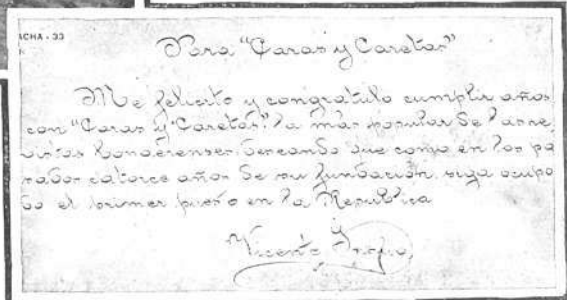 ACHA - 33
Para "Caras y Caretas"
Me felicito y congratulo cumplir años
con "Caras y Caretas" la mas popular de las re
vistas bonaerenses deseando que como en los pa
sados catorce años de su fundación, siga ocupa
do el primer puesto en la Republica
Vicente